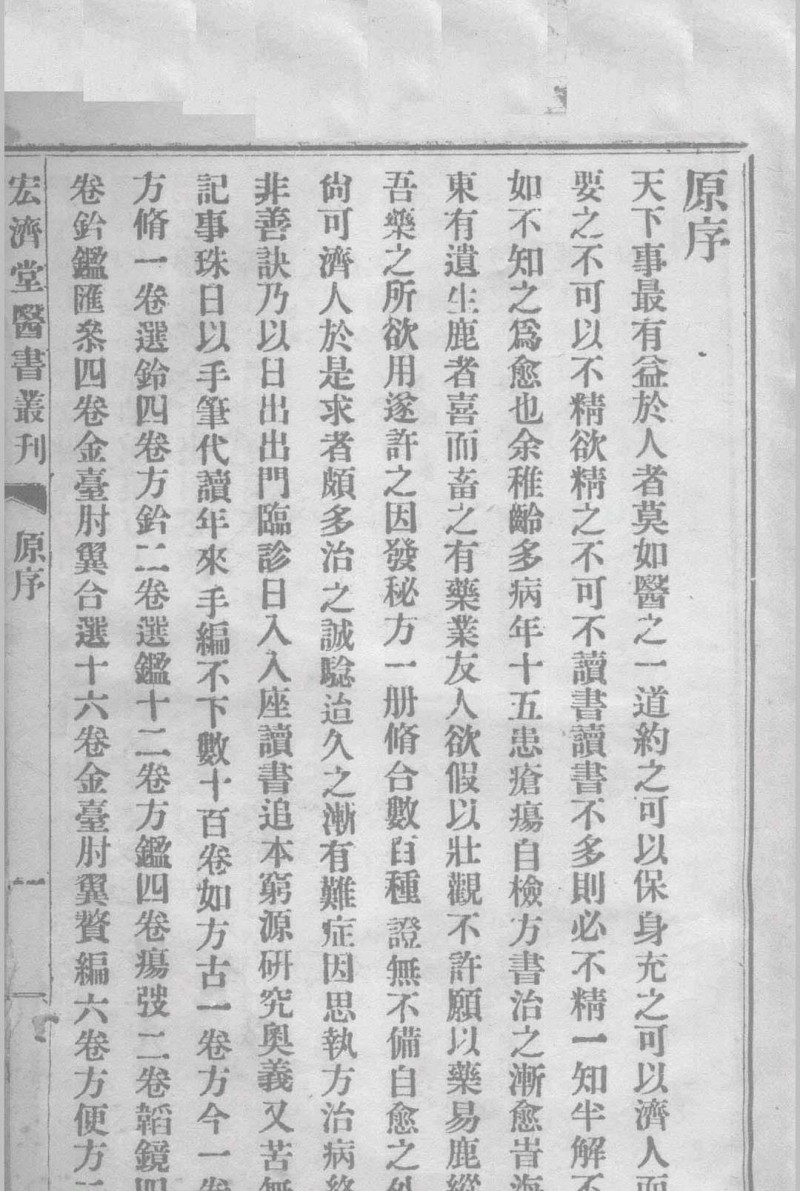 原序
天下事最有益於人者莫如醫之一道約之可以保身充之可以濟人而
要之不可以不精欲精之不可不讀書讀書不多則必不精一知半解不
如不知之爲愈也余稚齡多病年十五患瘡瘍自檢方書治之漸愈岢海
東有遺生鹿者喜而畜之有藥業友人欲假以壯觀不許願以藥易鹿縱
吾藥之所欲用遂許之因發秘方一册脩合數百種證無不備自愈之外
尙可濟人於是求者頗多治之誠騐迨久之漸有難症因思執方治病終
非善訣乃以日出出門臨診日入入座讀書追本窮源研究奧義又苦無
記事珠日以手筆代讀年來手編不下數十百卷如方古一卷方今一卷
方脩一卷選鈴四卷方鈐二卷選鑑十二卷方鑑四卷瘍弢二卷韜鏡四
卷鈐鑑匯叅四卷金臺肘翼合選十六卷金臺肘翼贅編六卷方便方
宏濟堂醫書叢刊 原序 一